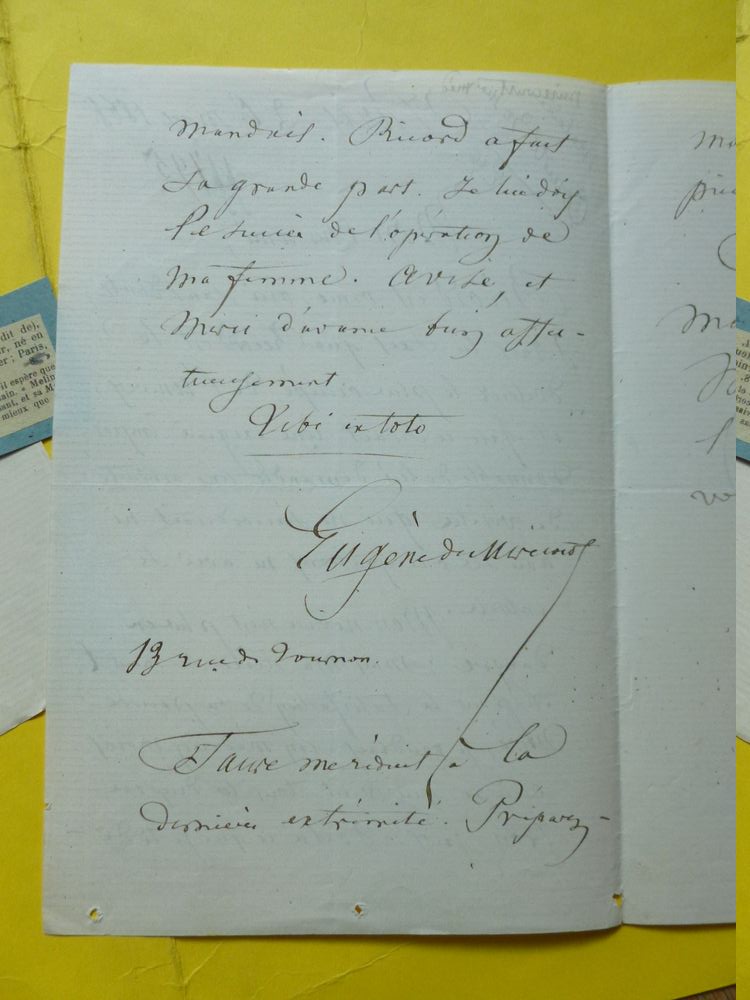 mandais. Ricord a fait
sa grande part. Je lui dois
le succès de l'opération de
ma femme. Avise, et
merci d'avance bien affec-
tueusement
Tibi ex toto
Eugène de Mirecourt
13 rue de Tournon.
Faure me réduit à la
dernière extrémité. Préparez-
dit de),
r, né en
er ; Paris,
il espère que
ain. " Melin
aut, et sa M
mieux que